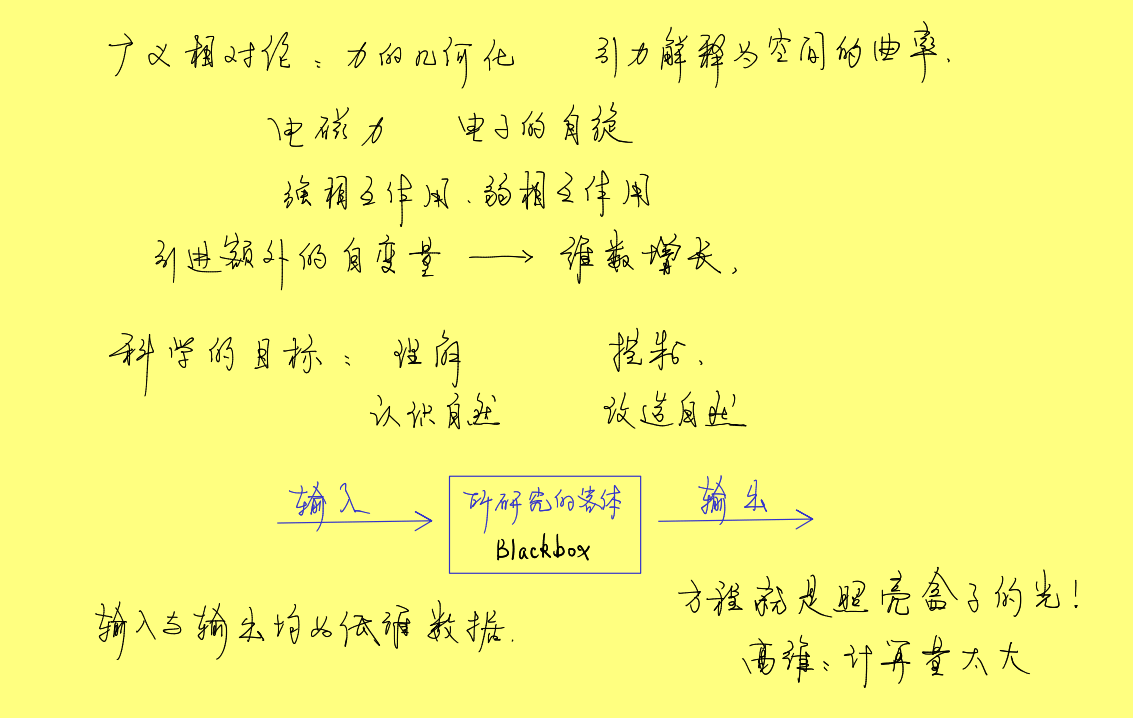 广义相对论：力的几何化 引力解释为空间的曲率.
电磁力 电子的自旋
强相互作用、弱相互作用
引进额外的自变量 → 维数增长,
科学的目标：理解 控制、
认识自然 改造自然
输入 所研究的客体 输出
Blackbox
方程就是照亮盒子的光！
输入与输出均为低维数据.
高维：计算量太大